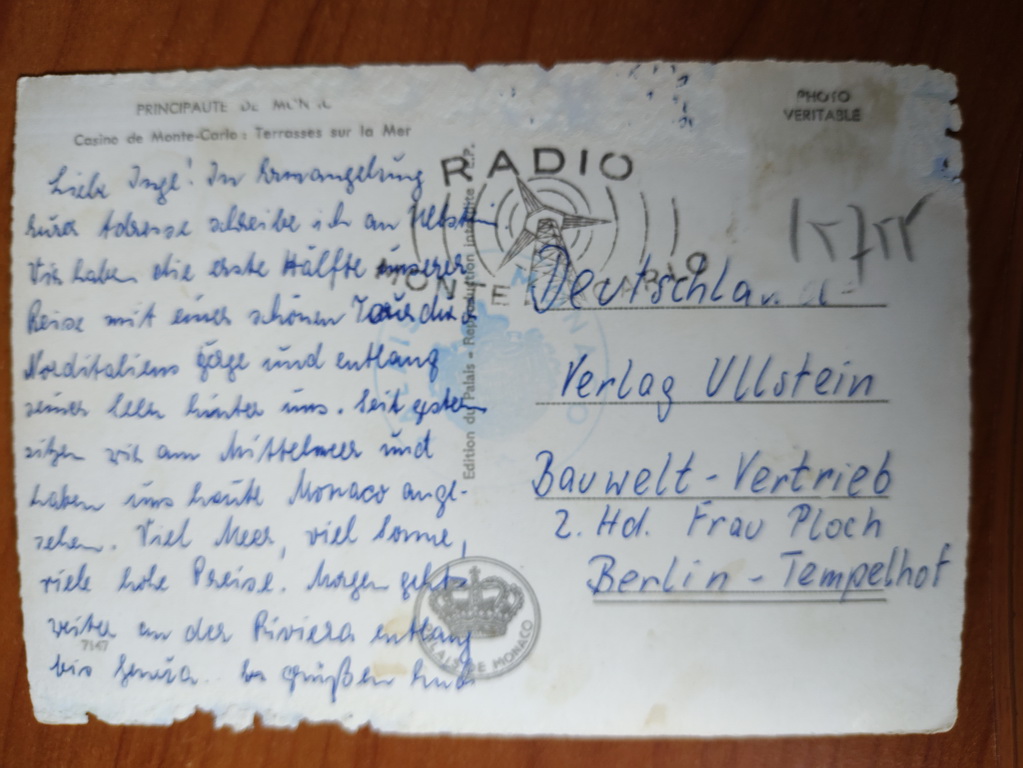 PRINCIPAUTE DE
Casino de Monte-Carlo : Terrasses sur la Mer
PHOTO
VERITABLE
RADIO
MONTE CARLO
Liebe Inge! In Ermangelung
Eurer Adresse schreibe ich an Ullstein
Wir haben die erste Hälfte unserer
Reise mit einer schönen Tour durch
Norditaliens Berge und entlang
seiner Seen hinter uns. Seit gestern
sitzen wir am Mittelmeer und
haben uns heute Monaco ange-
sehen. Viel Meer, viel Sonne,
viele hohe Preise. Morgen geht
weiter an der Riviera entlang
bis Genua. Es grüßen
7147
Edition du Palais - Reproduction interdite
PALAIS DE MONACO
Deutschland
Verlag Ullstein
Bauwelt-Vertrieb
z. Hd. Frau Ploch
Berlin - Tempelhof